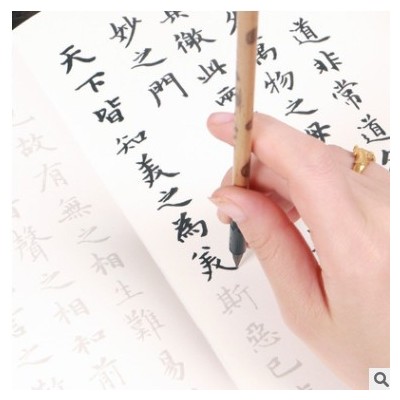 道非常道
萬物之母
徼此兩
妙之門
天下皆知美之為美斯惡已
故有無之相生難易
聲之相和前